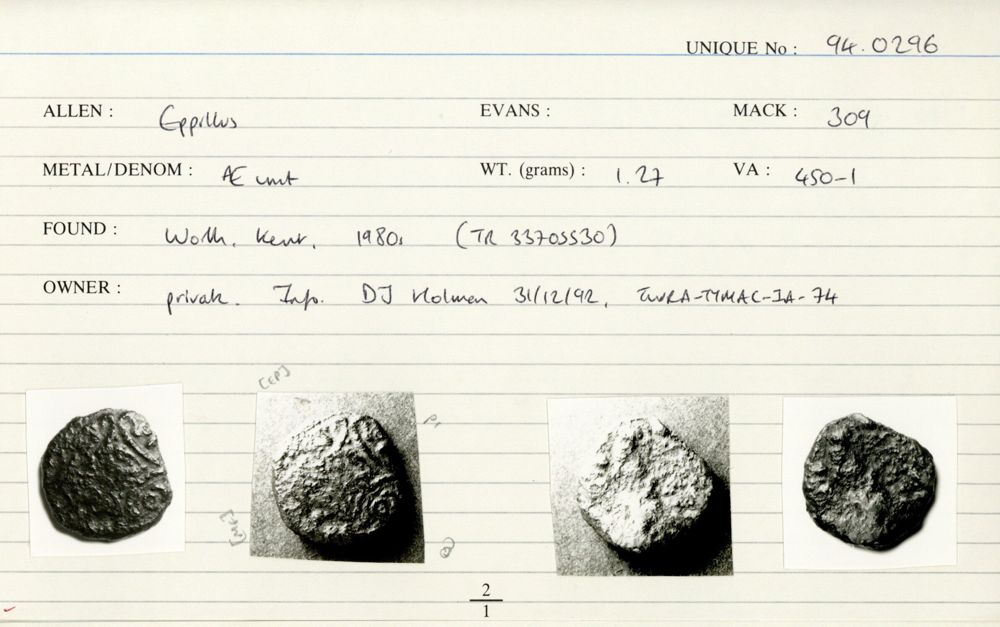 UNIQUE No : 94.0296
ALLEN : Eppillus EVANS : MACK : 309
METAL/DENOM : Æ unit WT. (grams) : 1.27 VA : 450-1
FOUND : Worth, Kent, 1980s (TR 33705530)
OWNER : private. Info. DJ Holman 31/12/92, -IA-74
[EP]
2
1